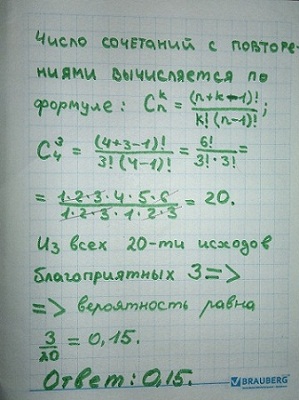 Число сочетаний с повторе-
ниями вычисляется по
формуле: C_n^k = (n+k-1)!/(k!(n-1)!);
C_4^3 = (4+3-1)!/(3!(4-1)!) = 6!/(3!·3!) =
= (1·2·3·4·5·6)/(1·2·3·1·2·3) = 20.
Из всех 20-ти исходов
благоприятных 3 =>
=> вероятность равна
3/20 = 0,15.
Ответ: 0,15.
BRAUBERG